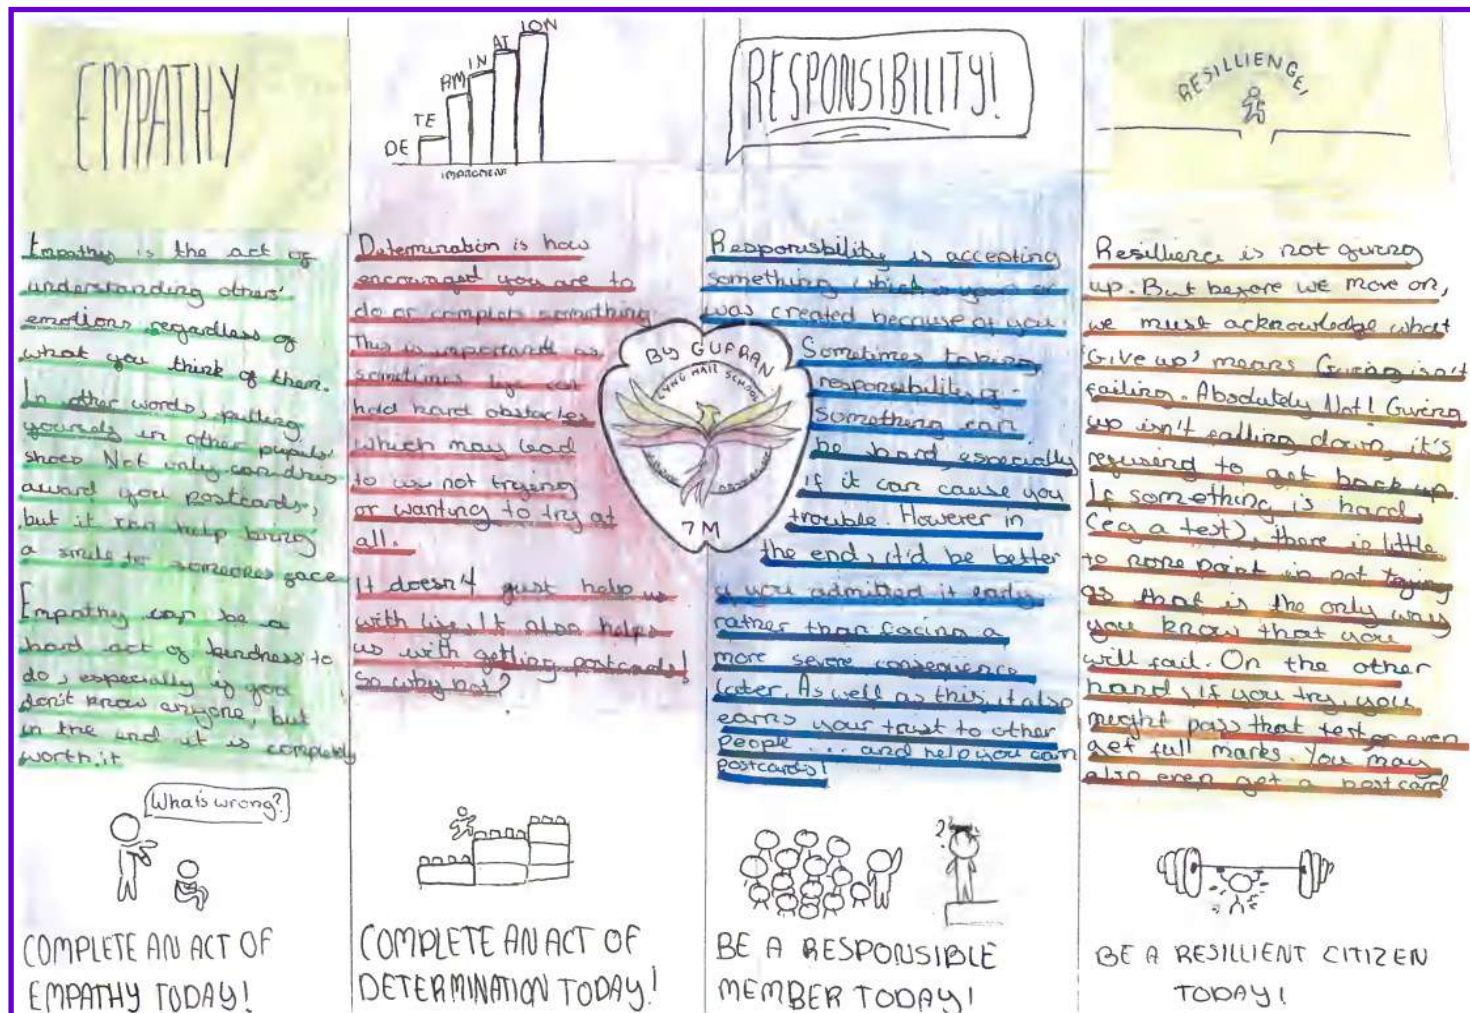 EMPATHY
Empathy is the act of
understanding others'
emotions regardless of
what you think of them.
In other words, putting
yourself in other pupils'
shoes Not only can this
award you postcards,
but it can help bring
a smile to someones face
Empathy can be a
hard act of kindness to
do, especially if you
don't know anyone, but
in the end it is completely
worth it
What's wrong?
COMPLETE AN ACT OF
EMPATHY TODAY!
DE
TE
RM
IN
AT
ION
Determination is how
encouraged you are to
do or complete something
This is important as
sometimes life can
hold hard obstacles
which may lead
to us not trying
or wanting to try at
all.
It doesn't just help us
with life, It also helps
us with getting postcards!
so why not?
COMPLETE AN ACT OF
DETERMINATION TODAY!
BY GUFRAN
LYNG HALL SCHOOL
7M
RESPONSIBILITY!
Responsibility is accepting
something which is yours or
was created because of you.
Sometimes taking
responsibility of
something can
be hard, especially
if it can cause you
trouble. However in
the end, it'd be better
if you admitted it early
rather than facing a
more severe consequence
later. As well as this, it also
earns your trust to other
people ... and help you earn
postcards!
?
BE A RESPONSIBLE
MEMBER TODAY!
RESILLIENCE,
Resillience is not giving
up. But before we move on,
we must acknowledge what
'Give up' means Giving isn't
failing. Absolutely Not! Giving
up isn't falling down, it's
refusing to get back up.
If something is hard,
(eg a test), there is little
to none point in not trying
as that is the only way
you know that you
will fail. On the other
hand, if you try, you
might pass that test or even
get full marks. You may
also even get a postcard
BE A RESILLIENT CITIZEN
TODAY!